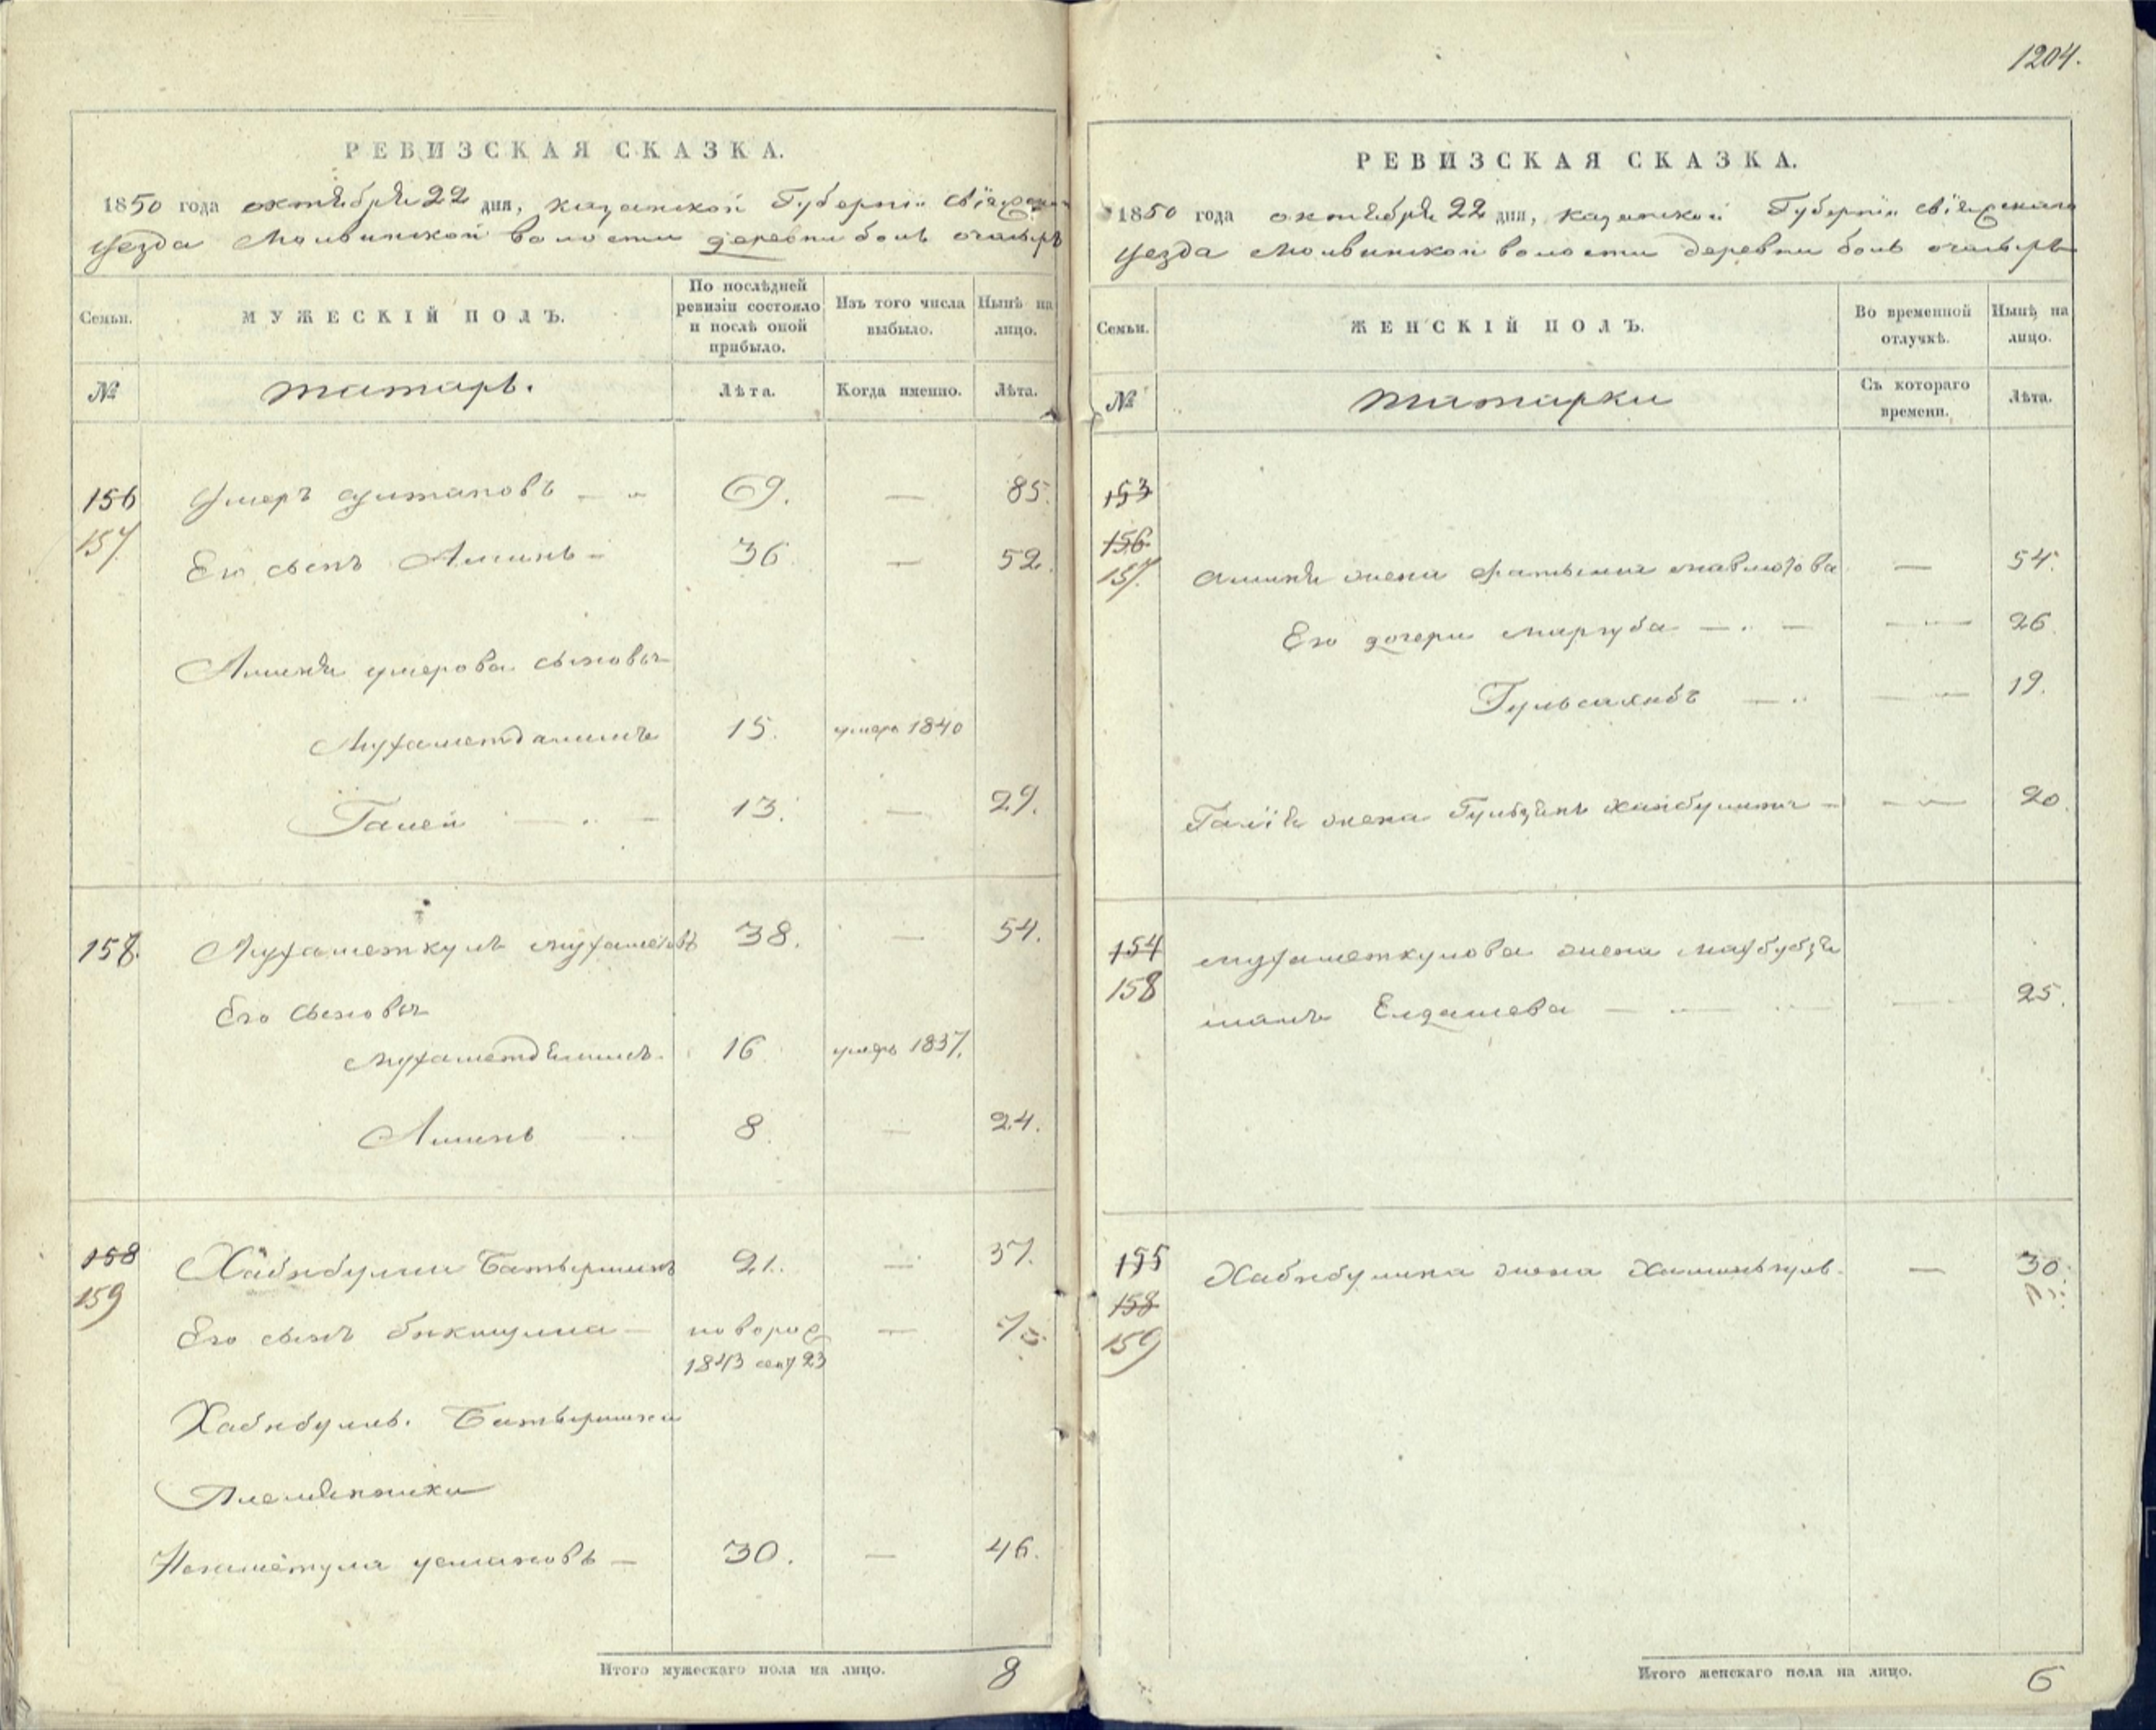 1204.
РЕВИЗСКАЯ СКАЗКА.
1850 года октября 22 дня, казанской Губернiи свiяжскаго
уезда Молвинской волости деревни боль очатырь
Семьи.
МУЖЕСКІЙ ПОЛЪ.
По послѣдней ревизіи состояло и послѣ оной прибыло.
Изъ того числа выбыло.
Нынѣ на лицо.
№
татаръ.
Лѣта.
Когда именно.
Лѣта.
156 Умеръ султановъ 69. — 85.
157 Его сынъ Аминь 36. — 52.
Аминя умерова сыновья
Мухаметдаминъ 15. умеръ 1840
Галей 13. — 29.
158. Мухаметкулъ мухаметовъ 38. — 54.
Его сыновья
Мухаметдяминъ 16 умеръ 1837.
Аминь 8. — 24.
158 Хабибулла Батыршинъ 21. — 37.
159
Его сынъ бикмулла — новорож — 7
1843 сент 23
Хабибулы. Батыршина
Племянники
Незаметулла усмановъ — 30. — 46.
Итого мужескаго пола на лицо. 8
РЕВИЗСКАЯ СКАЗКА.
1850 года октября 22 дня, казанской Губернiи свiяжскаго
уезда Молвинской волости деревни боль очатырь
Семьи.
ЖЕНСКІЙ ПОЛЪ.
Во временной отлучкѣ.
Нынѣ на лицо.
№
татарки
Съ котораго времени.
Лѣта.
153
156
157. Аминя жена фатыма мавлютова — 54.
Его дочери Маргуба — 26.
Гульсаянбъ — 19.
Галiя жена Гульзянъ хайбуллина — 20.
154 мухаметкулова жена Махбубзя
158 шамъ Елдашева — 25.
155 Хабибулина жена — 30.
158
159
Итого женскаго пола на лицо. 6